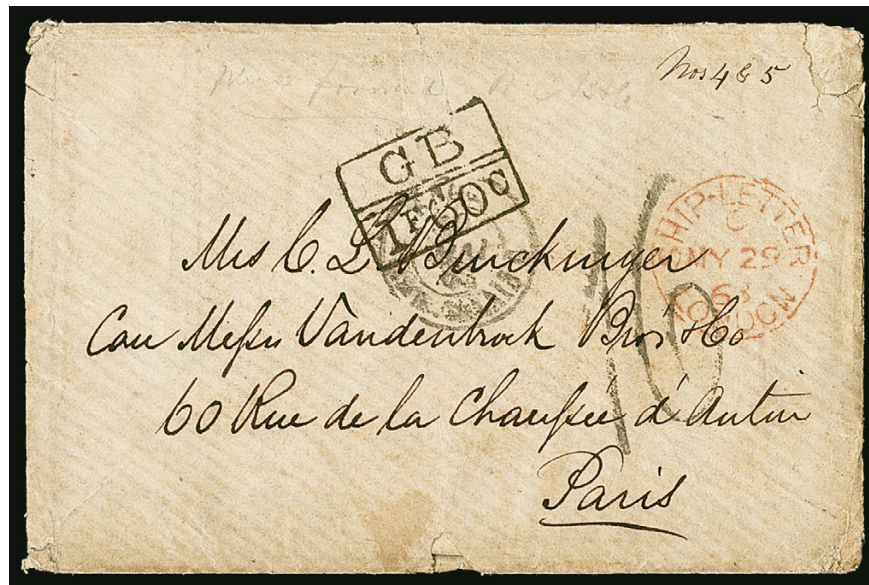 Nos 4 & 5
GB
1F60c
SHIP-LETTER
C
MY 29
63
LONDON
Mrs C. L. Burckmyer
Care Messrs Vandenbrock Bros & Co
16
60 Rue de la Chaussée d'Antin
Paris